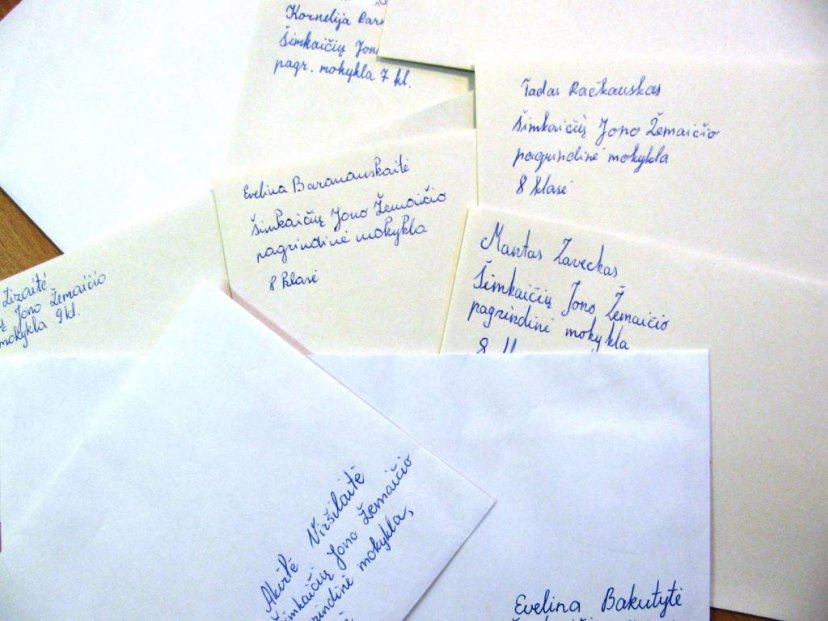 Kornelija
Šimkaičių Jono
pagr. mokykla 7 kl.
Tadas Račkauskas
Šimkaičių Jono Žemaičio
pagrindinė mokykla
8 klasė
Evelina Baranauskaitė
Šimkaičių Jono Žemaičio
pagrindinė mokykla
8 klasė
Mantas Zaveckas
Šimkaičių Jono Žemaičio
pagrindinė mokykla
8
Jono Žemaičio
mokykla 9 kl.
Akvilė Viršilaitė
Šimkaičių Jono Žemaičio
pagrindinė mokykla,
Evelina Bakutytė